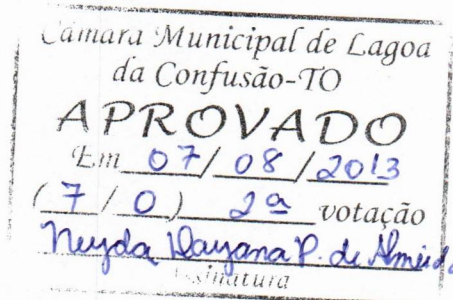 Câmara Municipal de Lagoa
da Confusão-TO
APROVADO
Em 07/08/2013
(7/0) 2ª votação
Neyda Dayana P. de Almeida
Assinatura